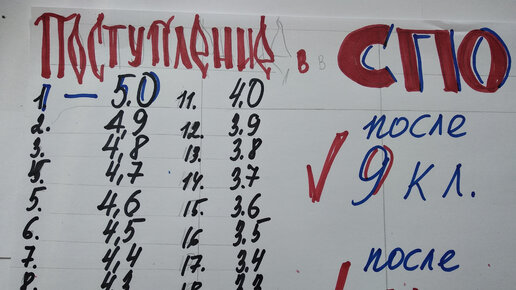 Поступление в СПО
1 — 5.0 11. 4.0 после
2. 4,9 12. 3.9
3. 4,8 13. 3.8 9 кл.
4,7 14. 3.7
5. 4,6 15. 3.6
6. 4,5 16 3.5
7. 4,4 17. 3.4 после
8. 4.3 18 3.3